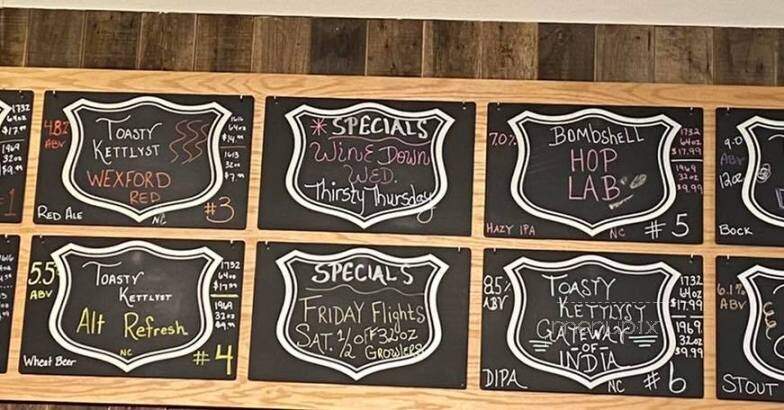 1732
64oz
$17.99
1969
32oz
$9.99
#1
4.8%
ABV
TOASTY
KETTLYST
WEXFORD
RED
NC
RED ALE
#3
1616
64oz
$14.99
1413
32oz
$7.99
* SPECIALS
WINE DOWN
WED.
Thirsty Thursday
7.0%
BOMBSHELL
HOP
LAB
1732
64oz
$17.99
1969
32oz
$9.99
HAZY IPA
NC
#5
9.0
ABV
12oz
BOCK
5.5%
ABV
TOASTY
KETTLYST
Alt Refresh
NC
Wheat Beer
#4
1732
64oz
$17.99
1969
32oz
$9.99
SPECIALS
FRIDAY Flights
SAT. 1/2 off 32oz
GROWLERS
8.5%
ABV
TOASTY
KETTLYST
GATEWAY
OF
INDIA
1732
64oz
$17.99
1969
32oz
$9.99
DIPA
NC
#6
6.1%
ABV
STOUT
menupix